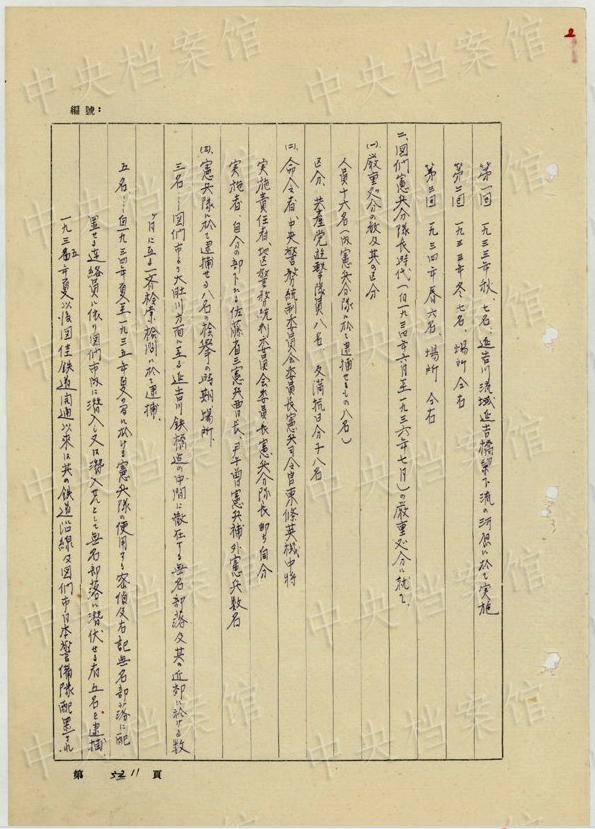 2
編號:
第一回 一九三三年秋、七名、延吉川流域延吉橋梁下流の河原に於て実施
第二回 一九三三年冬、七名、場所 仝右
第三回 一九三四年春 六名、場所 仝右
二、図們憲兵分隊長時代(自一九三四年六月至一九三六年七月)の厳重処分に就て、
(一)厳重処分の数及其の区分
人員十六名(内憲兵分隊に於て逮捕せるもの八名)
区分、共産党遊撃隊員八名 反満抗日分子八名
(二)命令者、中央警務統制委員会委員長憲兵司令官東條英機中将
実施責任者、地区警務統制委員会委員長憲兵分隊長即ち自分
実施者、自分の部下たる佐藤省三憲兵曹長、憲兵補外憲兵数名
(四)憲兵隊に於て逮捕せる八名の検挙の時期場所、
三名…図們市より大肚川方面に至る延吉川鉄橋迄の中間に散在する無名部落及其の近郊に於ける数
ヶ月に亘る一斉検索検問に於て逮捕、
五名…自一九三四年夏至一九三五年夏の間に於ける憲兵隊の使用する密偵及右記無名部落に配
置せる連絡員に依り図們市内に潜入し又は潜入先として無名部落に潜伏せる者五名を逮捕、
一九三五年夏以後図佳鉄道開通以来は其の鉄道沿線及図們市日本警備隊配置され
第 11 頁
中央档案馆